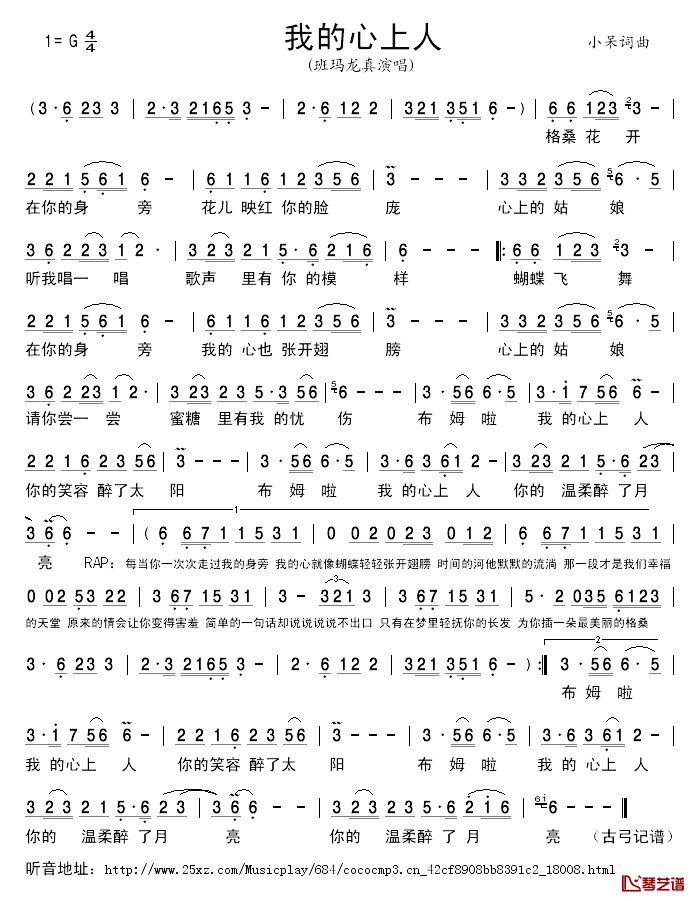 我的心上人
1= G 4/4
小呆词曲
(班玛龙真演唱)
( 3· 6 23 3 | 2·3 2165 3 - | 2·3 6 1 2 - | 321 351 6 - ) | 6 6 123 2 3 - |
格桑 花 开
2 2 1 561 6 - | 61 16 12 356 | 3 - - - | 33 2 356 5 6·5 |
在你的身 旁 花儿 映红 你的脸 庞 心上的 姑 娘
36 2 23 1 2· | 3 23 21 5·6 216 | 6 - - - |: 66 123 2 3 - |
听我唱一 唱 歌声 里有 你 的模 样 蝴蝶 飞 舞
2 2 1 561 6 - | 61 16 12 356 | 3 - - - | 33 2 356 5 6·5 |
在你的身 旁 我的 心也 张开翅 膀 心上的 姑 娘
36 2 23 1 2· | 3 23 21 5·3 56 | 5 6 - - - | 3·56 6·5 | 3·1 7 56 6 - |
请你尝一 尝 蜜糖 里有我 的忧 伤 布 姆 啦 我 的心上 人
22 16 23 56 | 3 - 3·56 6·5 | 3·6 3 61 2 - | 3 23 21 5·6 23 |
你的笑容 醉了太 阳 布 姆 啦 我 的心上 人 你的 温柔醉 了月
3 6 6 - - | ( 6 671 1531 | 0 02 023 012 | 6 671 1531 |
1
亮 RAP: 每当你一次次走过我的身旁 我的心就像蝴蝶轻轻张开翅膀 时间的河他默默的流淌 那一段才是我们幸福
0 02 53 22 | 3 671 1531 | 3 - 321 3 | 3 671 1531 | 0 2 035 6123 |
3
的天堂 原来的情会让你变得害羞 简单的一句话却说说说说不出口 只有在梦里轻抚你的长发 为你插一朵最美丽的格桑
3· 6 23 3 | 2·3 2165 3 - | 2·3 6 1 2 - | 321 351 6 - ) :| 3·56 6·5 |
2
布 姆 啦
3·1 7 56 6 - | 22 16 23 56 | 3 - 3·56 6·5 | 3·6 3 61 2 - |
我 的心上 人 你的笑容 醉了太 阳 布 姆 啦 我 的心上 人
3 23 21 5·6 23 | 3· 3 6 6 - | 3 23 21 5·6 216 | 61 6 - - - ||
你的 温柔醉 了月 亮 你的 温柔醉 了 月 亮 (古弓记谱)
听音地址: http://www.25xz.com/Musicplay/684/cococmp3.cn_42cf8908bb8391c2_18008.html
琴艺谱